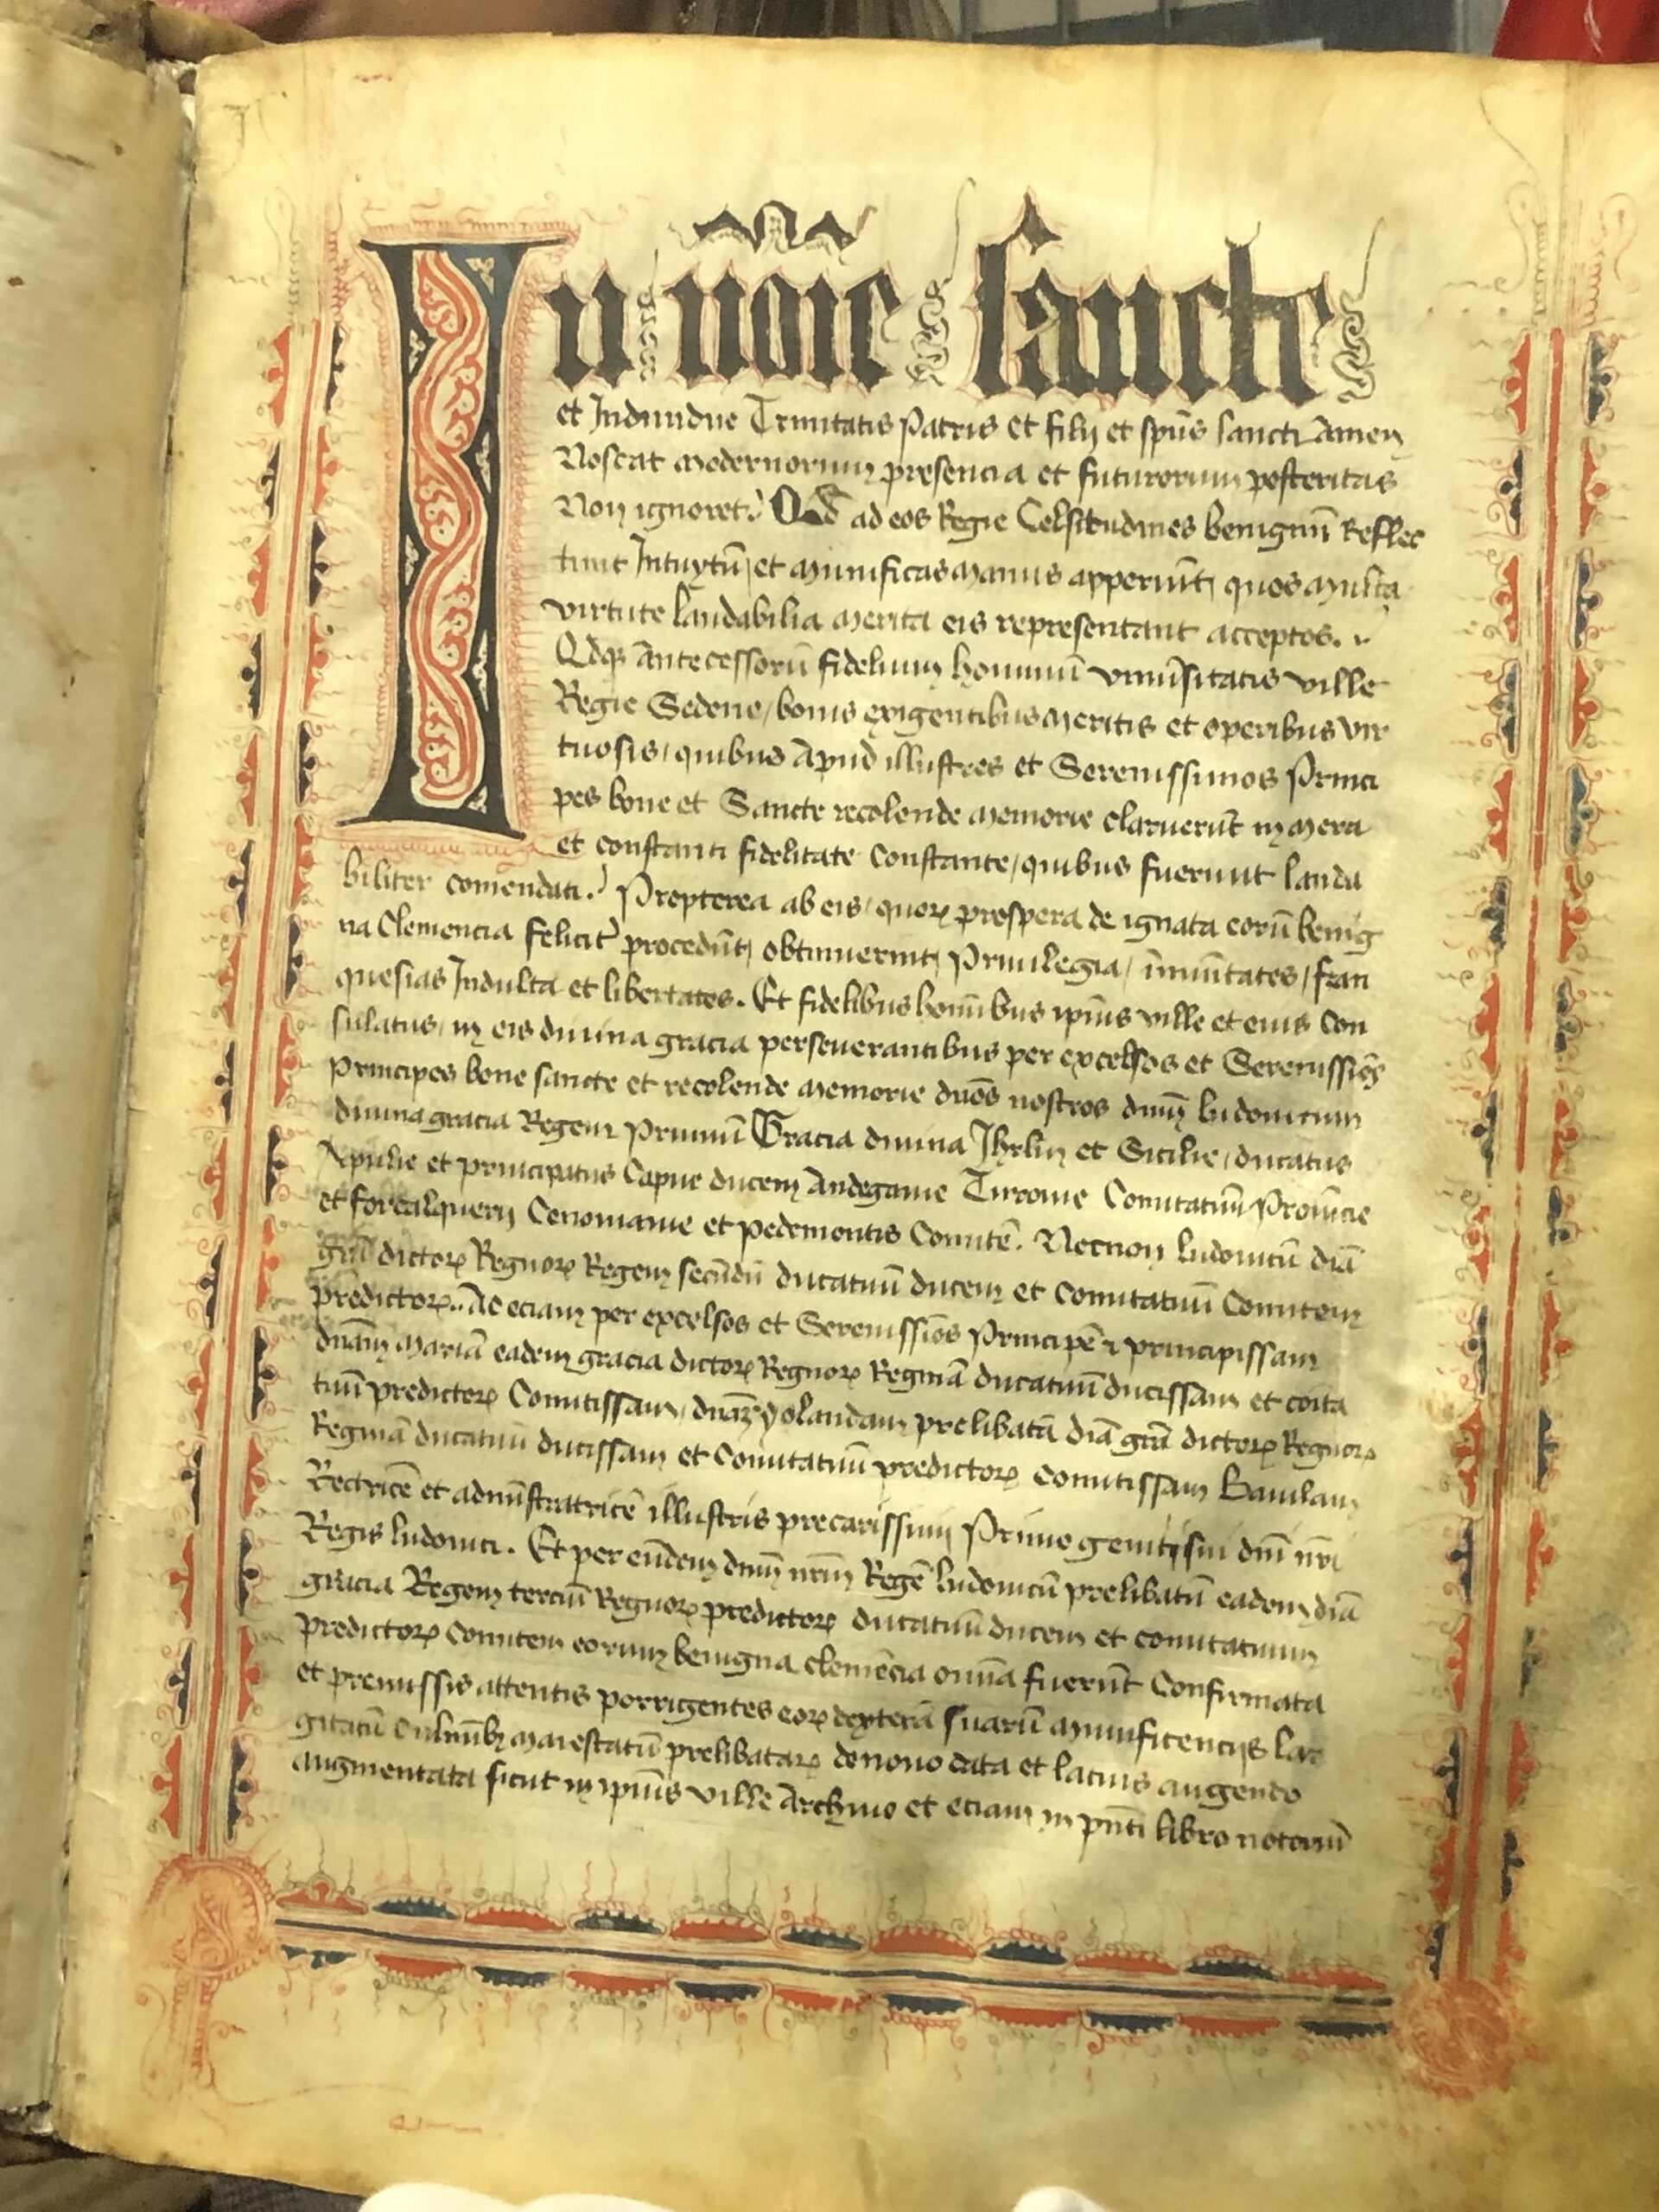 In noīe sancte
et Indiuidue Trinitatis Patris et filij et spūs sancti Amen
Noscat modernorum presencia et futurorum posteritas
Non ignoret. Qd ad eos Regie Celsitudines benignū Reflec
tunt Intuytū et munificas manus apperiūt quos multa
virtute laudabilia merita eis representant acceptos.
Qdqꝫ antecessorū fidelium hominū vniūsitatis ville
Regie Sedene, bonis exigentibus meritis et operibus vir
tuosis, quibus Apud illustres et Serenissimos Princi
pes bone et Sancte recolende memorie claruerūt in mera
et constanti fidelitate Constante, quibus fuerunt lauda
biliter comendati. Propterea ab eis, quoꝝ prospera de ignata eorū benig
na Clemencia feliciter procedūt, obtinuerint Priuilegia, īmūitates, fran
quesias Indulta et libertates. Et fidelibus homībus ipīus ville et eius Con
sulatus, in eis diuina gracia perseuerantibus per excelsos et Serenissīos
Principes bone sancte et recolende memorie dnōs nostros dnūm ludouicum
diuina gracia Regem Primū Gracia diuina Jhrlm et Sicilie, ducatus
Apulie et principatus Capue ducem Andegauie Turonie Comitatuū Prouīcie
et forcalquerij Cenomanie et pedemontis Comitē. Necnon ludouicū diā
grā dictoꝝ Regnoꝝ Regem secūdū ducatuū ducem et Comitatuū Comitem
predictoꝝ. Ac eciam per excelsos et Serenissīos Principē & principissam
dnām Mariā eadem gracia dictoꝝ Regnoꝝ Reginā ducatuū ducissam et coīta
tuū predictoꝝ Comitissam, dnāꝫ yolandam prelibatā diā grā dictoꝝ Regnoꝝ
Reginā ducatuū ducissam et Comitatuū predictoꝝ Comitissam Baiulam
Rectricē et admīstratricē illustris precarissimi Primogeniti sui dnī nrī
Regis ludouici. Et per eūdem dnūm nrūm Regē ludouicū prelibatū eadem diā
gracia Regem terciū Regnoꝝ predictoꝝ ducatuū ducem et comitatuum
predictoꝝ Comitem eorum benigna clemēcia omīa fuerūt Confirmata
et premissis attentis porrigentes eoꝝ dexterā suarū munificencijs lar
gitatū Culmībꝫ maiestatū prelibataꝝ de nouo data et lacius augendo
augmentata sicut in ipīus ville Archiuo et eciam in pn̄ti libro notoriū